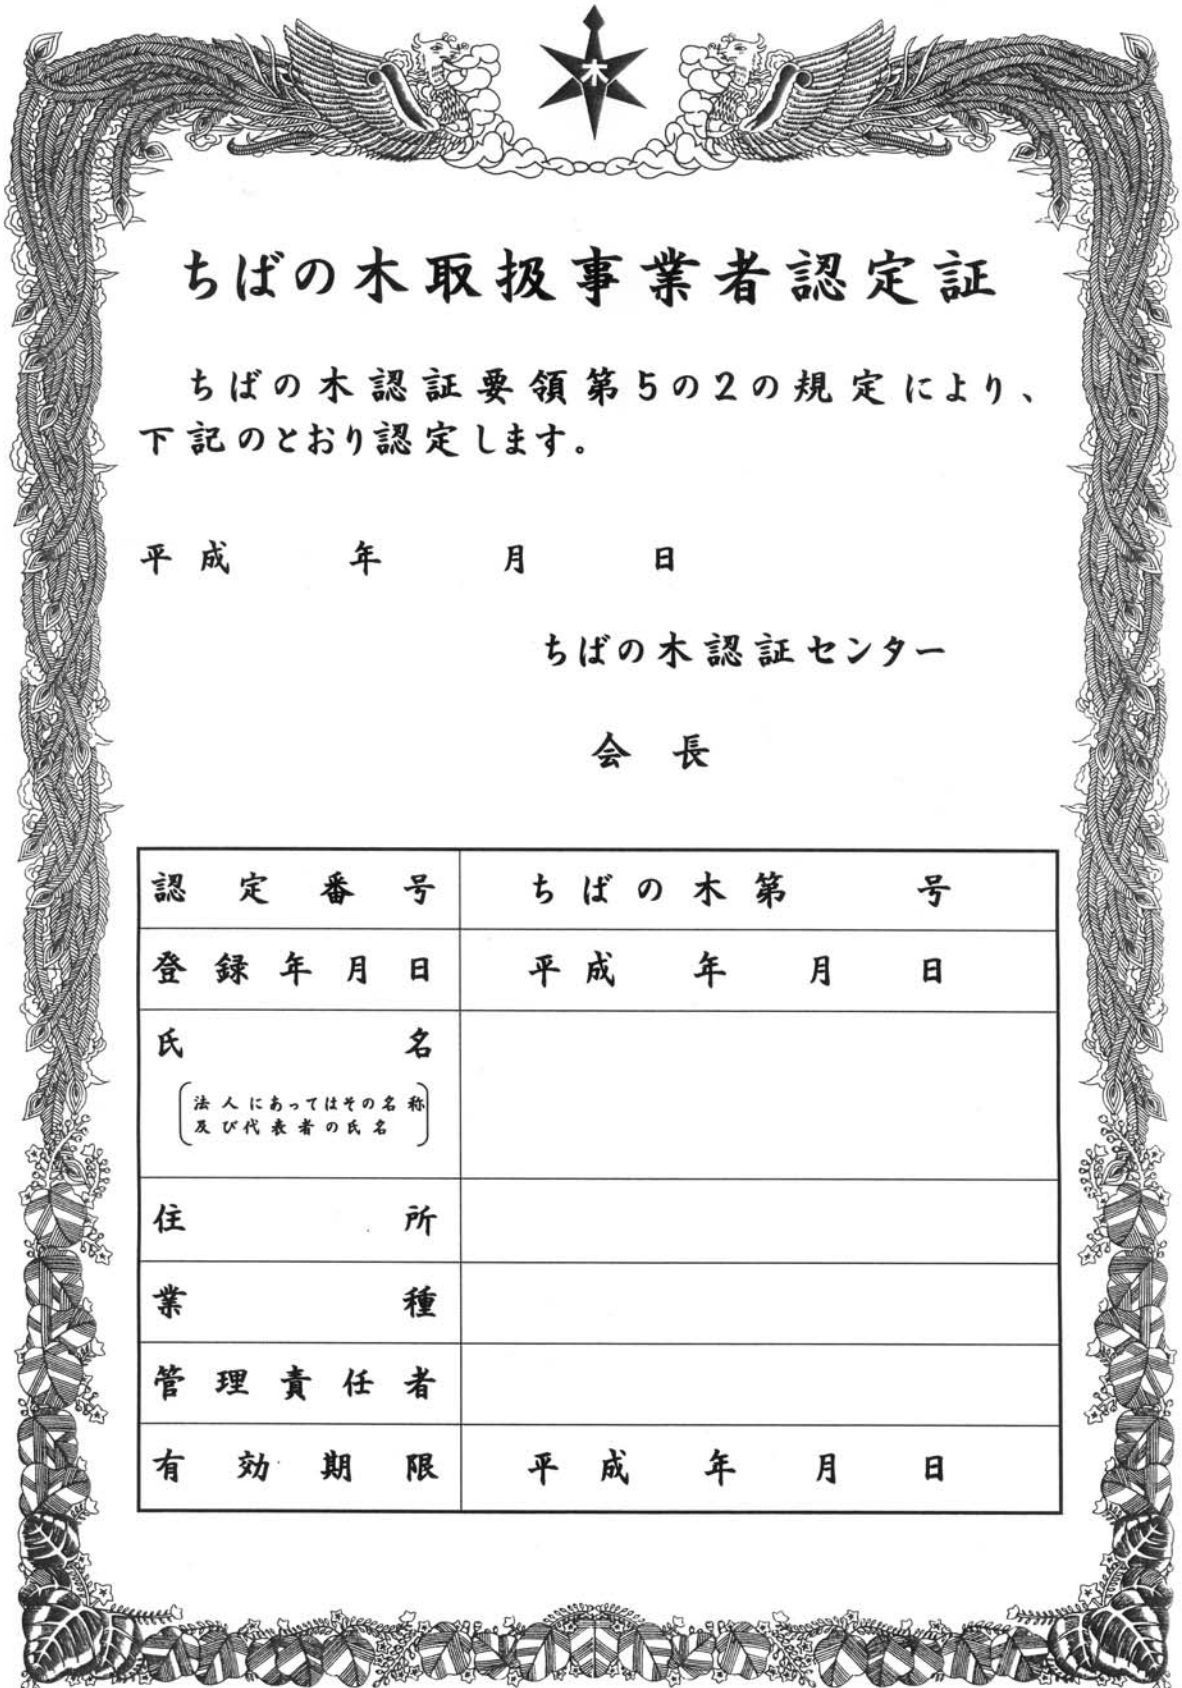 木
ちばの木取扱事業者認定証
ちばの木認証要領第5の2の規定により、
下記のとおり認定します。
平成 年 月 日
ちばの木認証センター
会長
認定番号 ちばの木第 号
登録年月日 平成 年 月 日
氏名
法人にあってはその名称
及び代表者の氏名
住所
業種
管理責任者
有効期限 平成 年 月 日